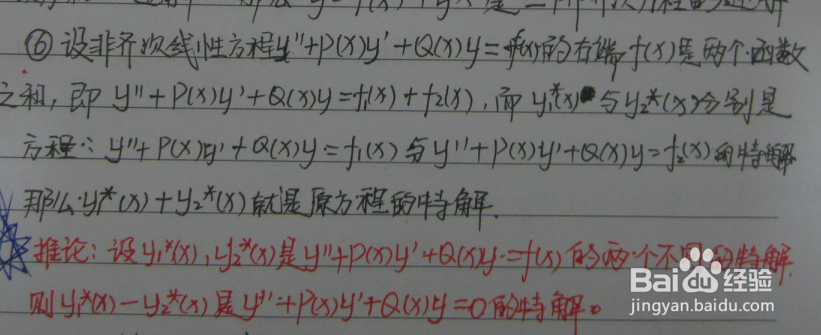 ⑥设非齐次线性方程y''+P(x)y'+Q(x)y=f(x)的右端f(x)是两个函数
之和，即 y''+P(x)y'+Q(x)y=f₁(x)+f₂(x)，而 y₁*(x) 与y₂*(x)分别是
方程：y''+P(x)y'+Q(x)y=f₁(x)与y''+P(x)y'+Q(x)y=f₂(x)的特解
那么y₁*(x)+y₂*(x)就是原方程的特解.
推论：设y₁*(x),y₂*(x)是y''+P(x)y'+Q(x)y=f(x)的两个不同的特解.
则y₁*(x)-y₂*(x)是y''+P(x)y'+Q(x)y=0的特解。
Baidu经验
jingyan.baidu.com